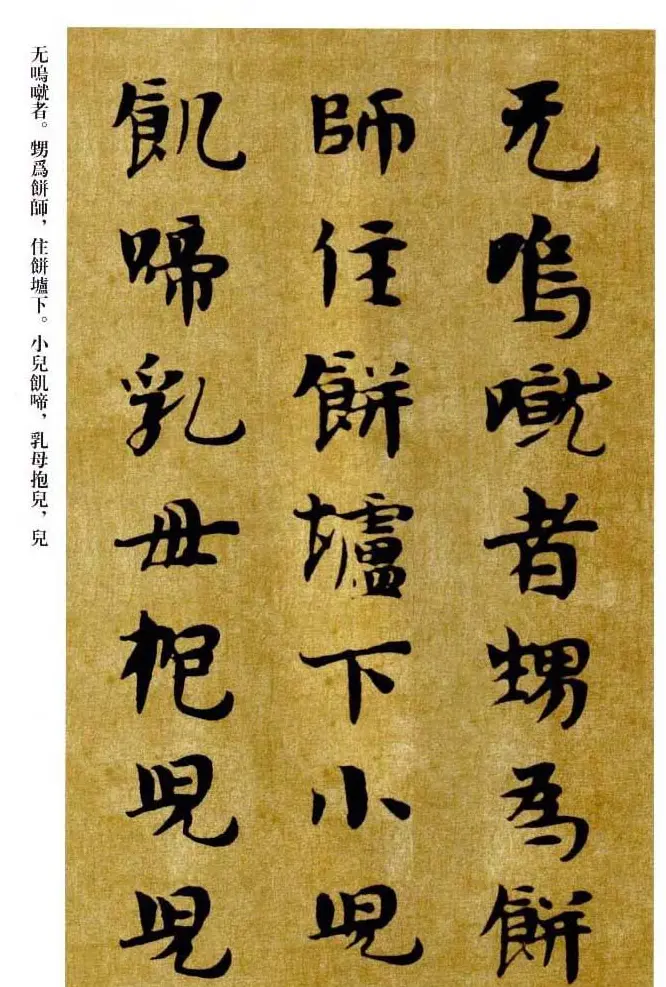 无嗚噈者甥為餅
師住餅壚下小兒
飢啼乳母抱兒兒
无嗚噈者。甥爲餅師，住餅壚下。小兒飢啼，乳母抱兒，兒